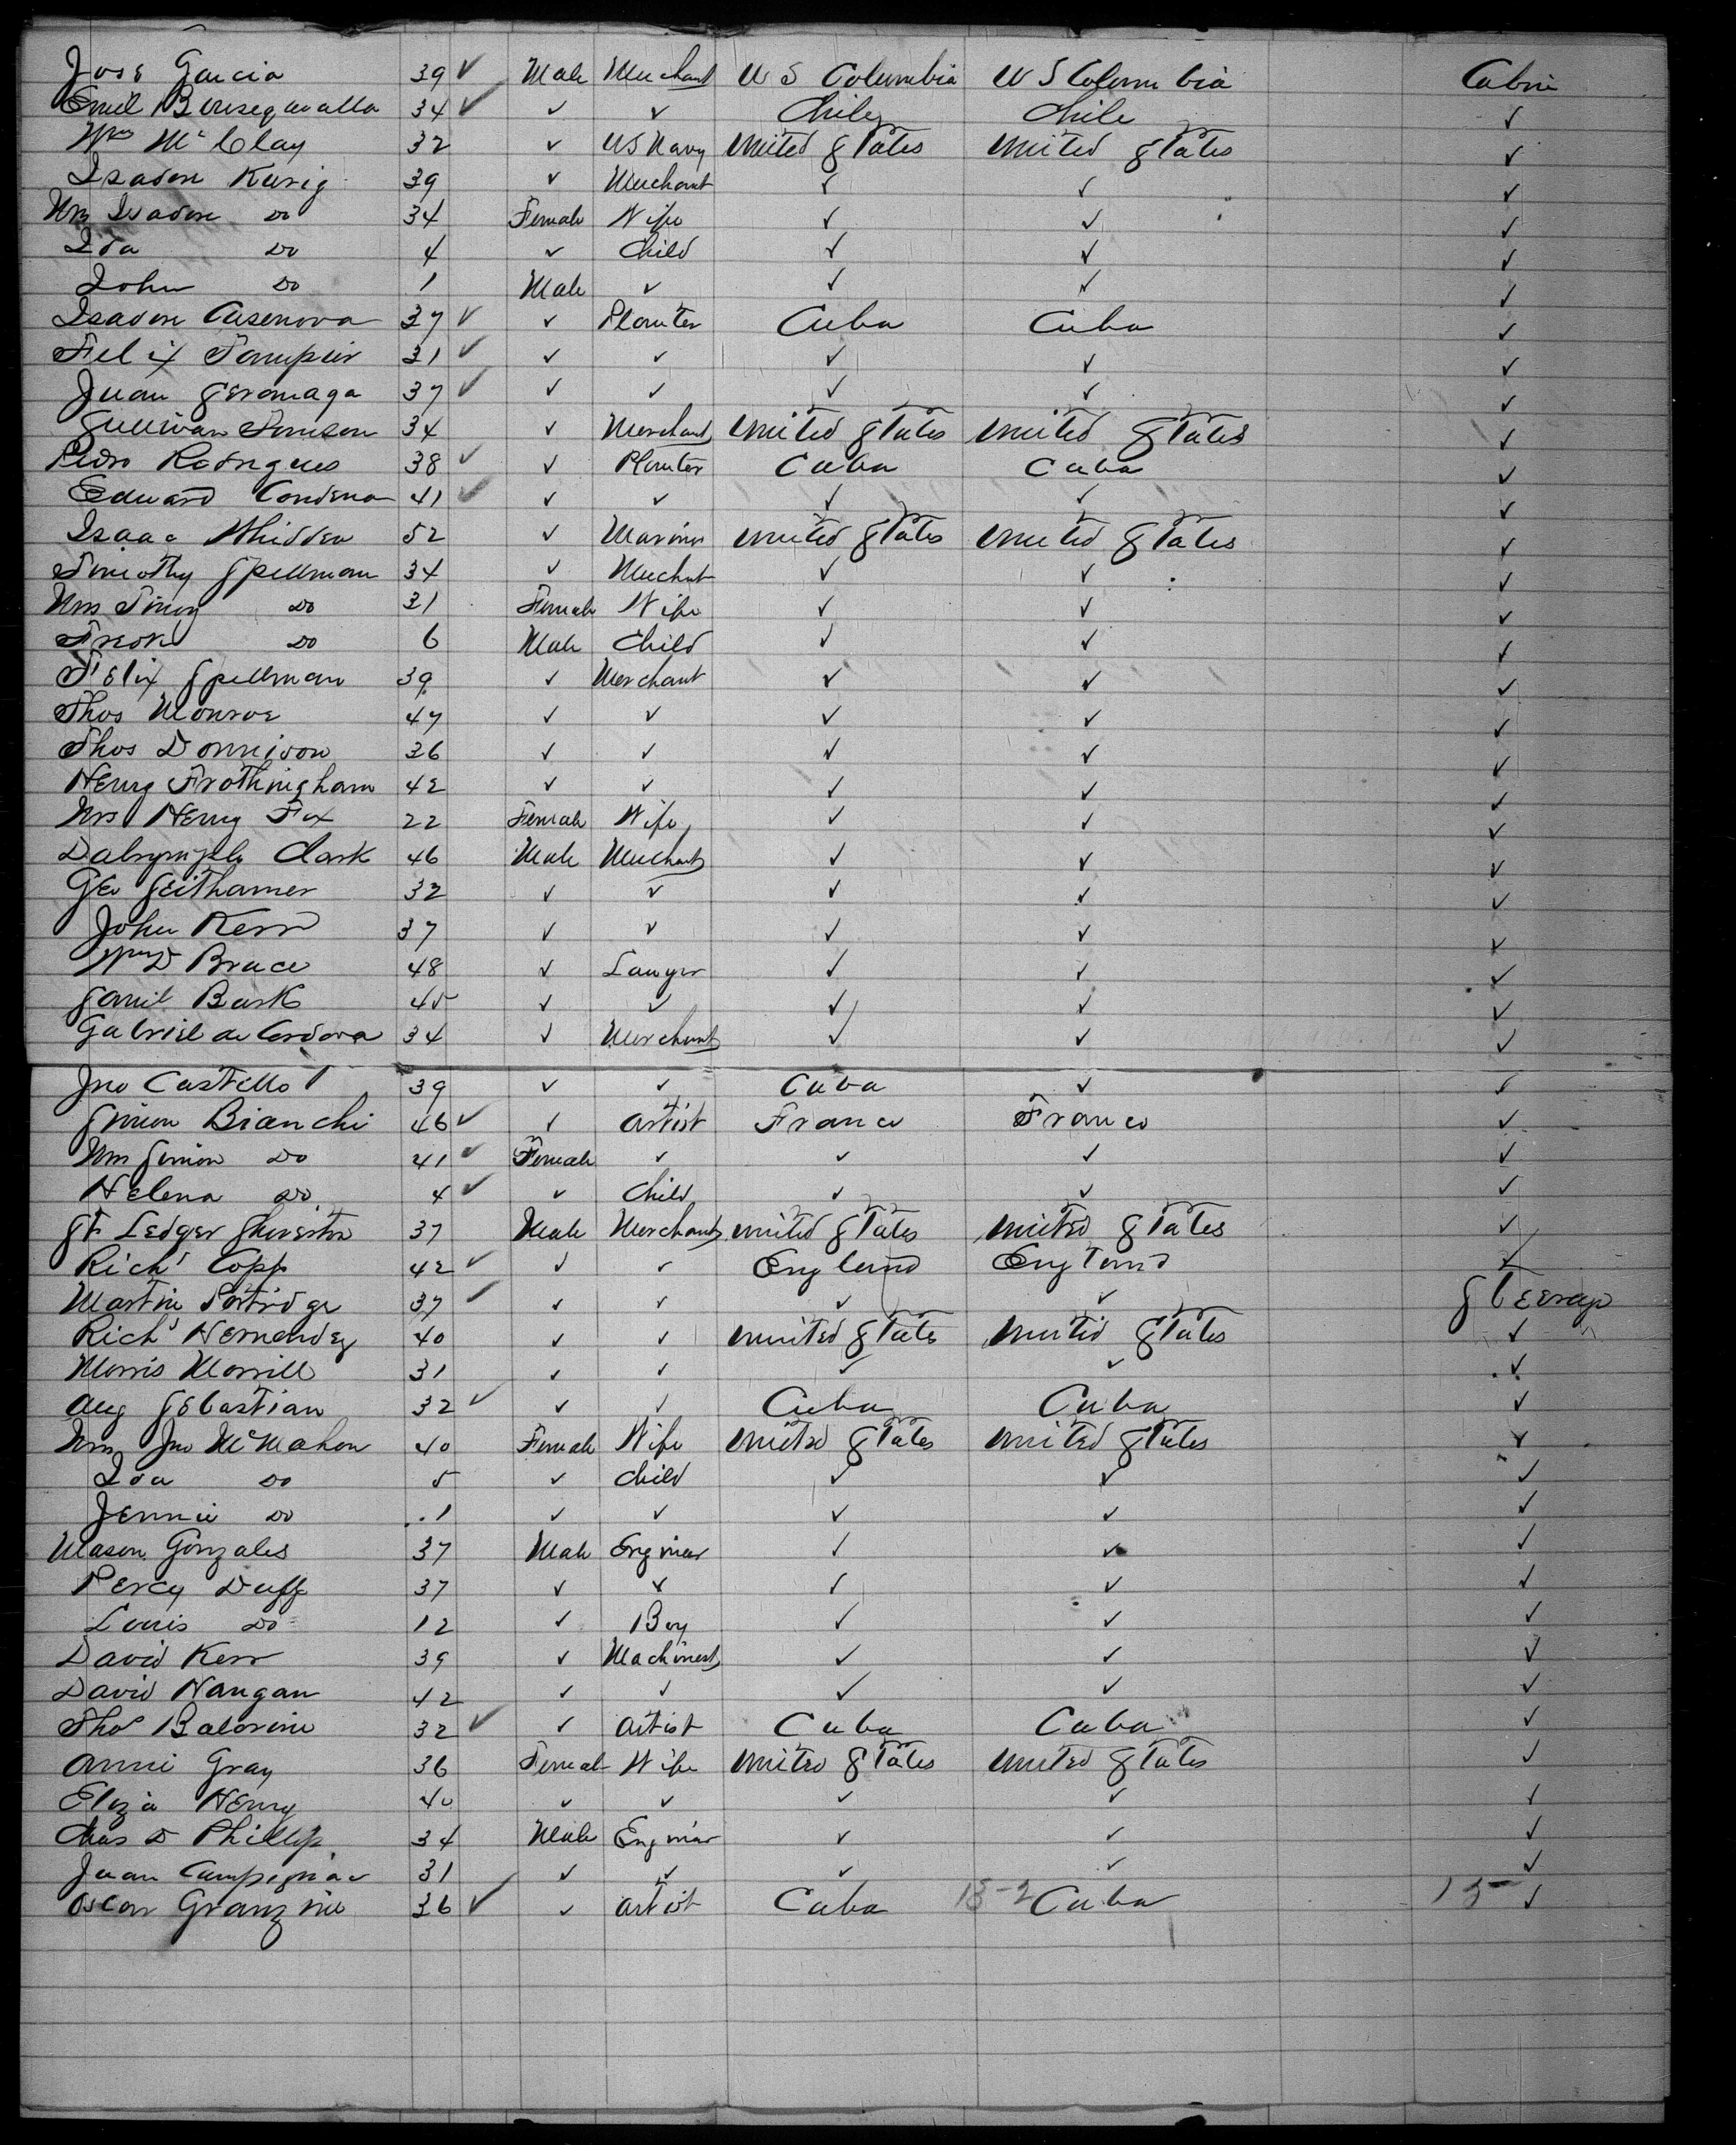 Jose Garcia 39 ✓ Male Merchant U S Columbia U S Columbia Cabin
Emil 34 ✓ ✓ ✓ Chile Chile ✓
Wm McClay 32 ✓ US Navy United States United States ✓
Isadore Kurig 39 ✓ Merchant ✓ ✓ ✓
Mrs Isadore Do 34 Female Wife ✓ ✓ ✓
Ida Do 4 ✓ Child ✓ ✓ ✓
John Do 1 Male ✓ ✓ ✓ ✓
Isadore Casenova 37 ✓ ✓ Planter Cuba Cuba ✓
Felix 31 ✓ ✓ ✓ ✓ ✓ ✓
Juan 37 ✓ ✓ ✓ ✓ ✓ ✓
34 ✓ Merchant United States United States ✓
Pedro Rodrigues 38 ✓ ✓ Planter Cuba Cuba ✓
Edward 41 ✓ ✓ ✓ ✓ ✓ ✓
Isaac Whidden 52 ✓ Mariner United States United States ✓
Timothy Spellman 34 ✓ Merchnt ✓ ✓ ✓
Mrs Timoy Do 31 Female Wife ✓ ✓ ✓
Do 6 Male Child ✓ ✓ ✓
Felix Spellman 39 ✓ Merchant ✓ ✓ ✓
Thos Monroe 47 ✓ ✓ ✓ ✓ ✓
Thos Dennison 36 ✓ ✓ ✓ ✓ ✓
Henry Frothingham 42 ✓ ✓ ✓ ✓ ✓
Mrs Henry Fox 22 Female Wife ✓ ✓ ✓
Dalrymple Clark 46 Male Merchant ✓ ✓ ✓
Geo 32 ✓ ✓ ✓ ✓ ✓
John Kerr 37 ✓ ✓ ✓ ✓ ✓
Wm D Bruce 48 ✓ Lawyer ✓ ✓ ✓
Saml Bark 45 ✓ ✓ ✓ ✓ ✓
Gabriel de Cordova 34 ✓ Merchant ✓ ✓ ✓
Jno Castillo 39 ✓ ✓ Cuba ✓ ✓
Simon Bianchi 46 ✓ ✓ Artist France France ✓
Mrs Simon Do 41 ✓ Female ✓ ✓ ✓ ✓
Helena Do 4 ✓ ✓ Child ✓ ✓ ✓
St Ledger 37 Male Merchant United States United States ✓
Richd Copp 42 ✓ ✓ ✓ England England ✓
Martin Partridge 37 ✓ ✓ ✓ ✓ ✓ Steerage
Richd Hernandez 40 ✓ ✓ United States United States ✓
Morris Morrill 31 ✓ ✓ ✓ ✓ ✓
Aug Sebastian 32 ✓ ✓ ✓ Cuba Cuba ✓
Mrs Jno McMahon 40 Female Wife United States United States ✓
Ida Do 5 ✓ Child ✓ ✓ ✓
Jennie Do 1 ✓ ✓ ✓ ✓ ✓
Mason Gonzales 37 Male Engineer ✓ ✓ ✓
Percy Duff 37 ✓ ✓ ✓ ✓ ✓
Louis Do 12 ✓ Boy ✓ ✓ ✓
David Kerr 39 ✓ Machinest ✓ ✓ ✓
David Nangan 42 ✓ ✓ ✓ ✓ ✓
Thos 32 ✓ ✓ Artist Cuba Cuba ✓
Annie Gray 36 Female Wife United States United States ✓
Eliza Henry 40 ✓ ✓ ✓ ✓ ✓
Chas D Phillips 34 Male Engineer ✓ ✓ ✓
Juan 31 ✓ ✓ ✓ ✓ ✓
Oscar 36 ✓ ✓ Artist Cuba Cuba ✓